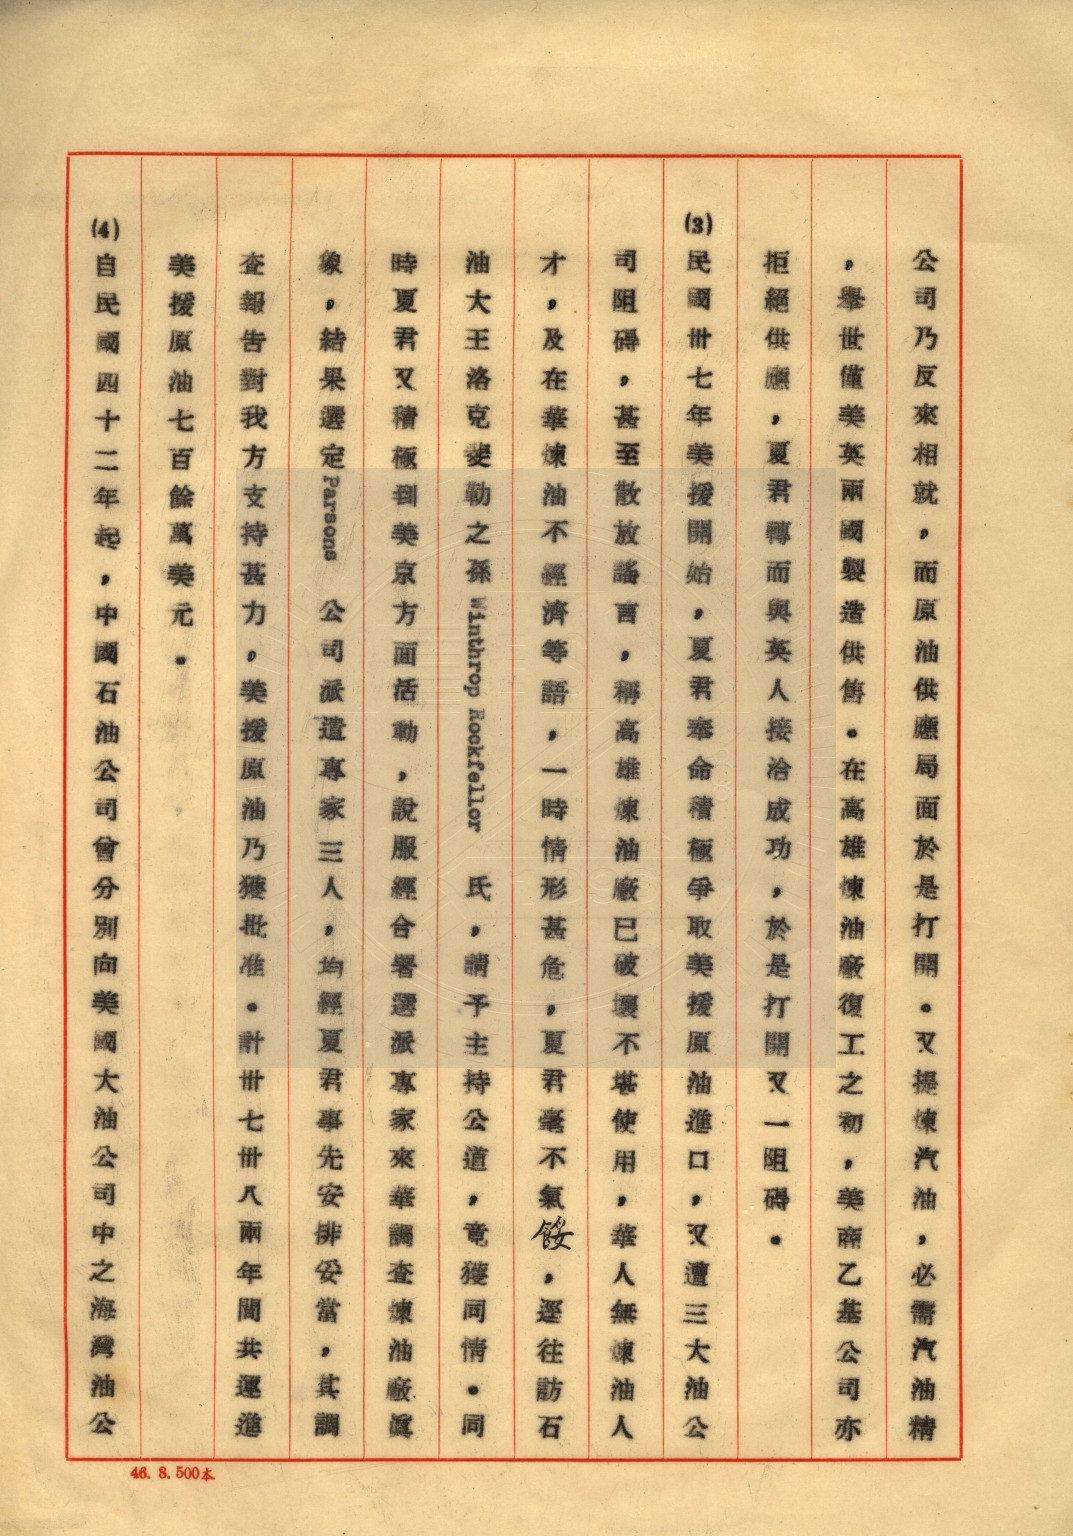 公司乃反來相就，而原油供應局面於是打開。又提煉汽油，必需汽油精
，舉世僅美英兩國製造供售。在高雄煉油廠復工之初，美商乙基公司亦
拒絕供應，夏君轉而與英人接洽成功，於是打開又一阻碍。
(3)民國卅七年美援開始，夏君奉命積極爭取美援原油進口，又遭三大油公
司阻碍，甚至散放謠言，稱高雄煉油廠已破壞不堪使用，華人無煉油人
才，及在華煉油不經濟等語，一時情形甚危，夏君毫不氣餒，逕往訪石
油大王洛克斐勒之孫Winthrop Rockfellor 氏，請予主持公道，竟獲同情。同
時夏君又積極到美京方面活動，說服經合署選派專家來華調查煉油廠眞
象，結果選定Parsons 公司派遣專家三人，均經夏君事先安排妥當，其調
查報告對我方支持甚力，美援原油乃獲批准。計卅七卅八兩年間共運進
美援原油七百餘萬美元。
(4)自民國四十二年起，中國石油公司曾分別向美國大油公司中之海灣油公
46. 8. 500本